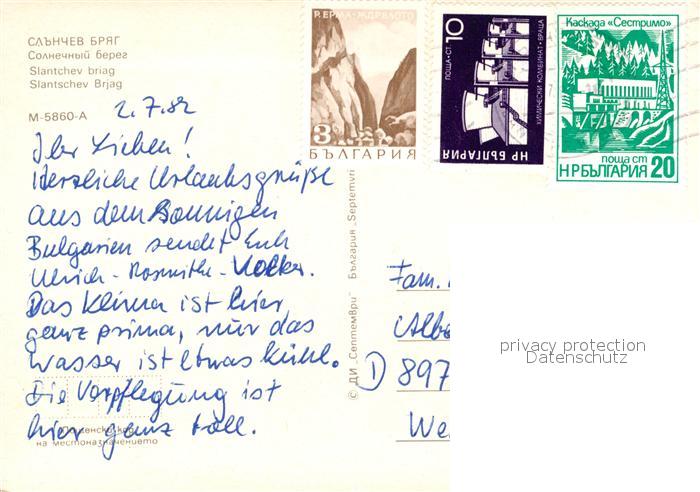 СЛЪНЧЕВ БРЯГ
Солнечный берег
Slantchev briag
Slantschev Brjag
М-5860-А
2.7.82
Ihr Lieben!
Herzliche Urlaubsgrüße
aus dem Sonnigen
Bulgarien sendet Euch
Ulrich - Roswitha - Volker.
Das Klima ist hier
ganz prima, nur das
Wasser ist etwas kühl.
Die Verpflegung ist
hier ganz toll.
Пощенски код
на местоназначението
© ДИ „Септември" България „Septemvri
Р. ЕРМА - ЖДРЕЛОТО
3
БЪЛГАРИЯ
ПОЩА • СТ. 10
ХИМИЧЕСКИ КОМБИНАТ - ВРАЦА
НР БЪЛГАРИЯ
Каскада «Сестримо»
поща ст
НР БЪЛГАРИЯ 20
Fam.
Albe
D 897
We
privacy protection
Datenschutz